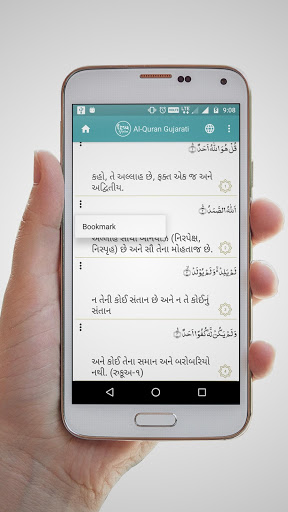 9:08
Al-Quran Gujarati
قُلْ هُوَ اللّٰهُ اَحَدٌ
કહો, તે અલ્લાહ છે, ફક્ત એક જ અને
અદ્વિતીય.
اَللّٰهُ الصَّمَدُ
Bookmark
(નિરપેક્ષ,
નિસ્પૃહ) છે અને સૌ તેના મોહતાજ છે.
لَمْ يَلِدْ وَلَمْ يُوْلَدْ
ન તેની કોઈ સંતાન છે અને ન તે કોઈનું
સંતાન
وَلَمْ يَكُنْ لَّهٗ كُفُوًا اَحَدٌ
અને કોઈ તેના સમાન અને બરોબરિયો
નથી. (રુકૂઅ-૧)